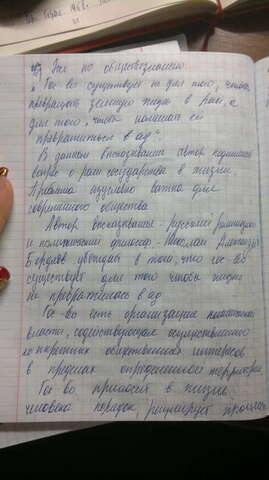 Эссе по обществознанию
"Гос-во существует не для того, чтобы
превращать земную жизнь в рай, а
для того, чтобы помешать ей
превратиться в ад".
В данном высказывании автор поднимает
вопрос о роли государства в жизни.
важна для
современного общества.
Автор высказывания - русский религиозный
и политический философ - Николай Александр.
Бердяев убеждает в том, что гос-во
существует для того чтобы жизнь
не превратилась в ад
Гос-во есть организация политической
власти, содействующая осуществлению
интересов
в пределах определенной территории.
Гос-во приносит в жизнь
человека порядок, регулирует